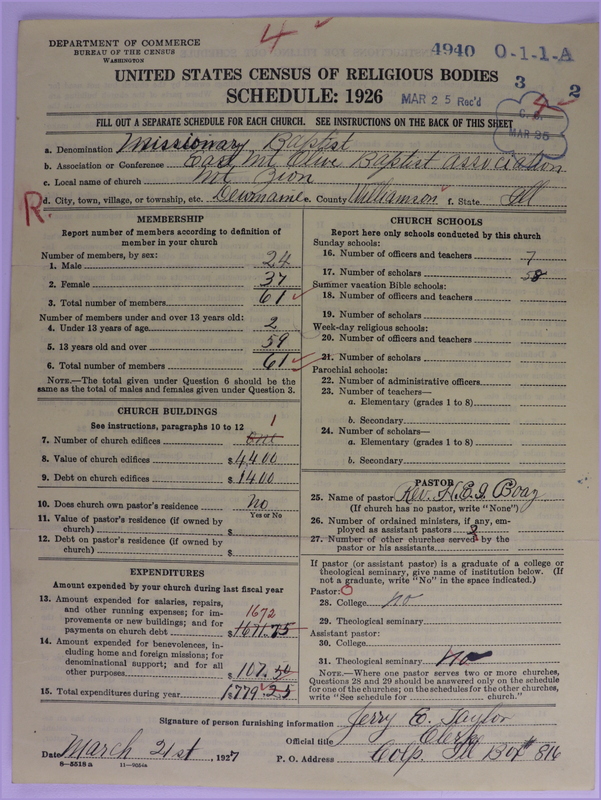 4
DEPARTMENT OF COMMERCE
BUREAU OF THE CENSUS
WASHINGTON
4940 O-1-1-A
UNITED STATES CENSUS OF RELIGIOUS BODIES
SCHEDULE: 1926
MAR 25 Rec'd
3
4
2
FILL OUT A SEPARATE SCHEDULE FOR EACH CHURCH. SEE INSTRUCTIONS ON THE BACK OF THIS SHEET
MAR 26
a. Denomination Missionary Baptist
b. Association or Conference East Mt Olive Baptist association
c. Local name of church Mt Zion
R.
d. City, town, village, or township, etc. Dewmaine e. County Williamson f. State Ill
MEMBERSHIP
Report number of members according to definition of
member in your church
Number of members, by sex:
1. Male 24
2. Female 37
3. Total number of members 61
Number of members under and over 13 years old:
4. Under 13 years of age 2
5. 13 years old and over 59
6. Total number of members 61
NOTE.—The total given under Question 6 should be
same as the total of males and females given under Question 3.
CHURCH BUILDINGS
See instructions, paragraphs 10 to 12
7. Number of church edifices 1
8. Value of church edifices $4400
9. Debt on church edifices $1400
10. Does church own pastor's residence No
Yes or No
11. Value of pastor's residence (if owned by
church) $
12. Debt on pastor's residence (if owned by
church) $
EXPENDITURES
Amount expended by your church during last fiscal year
13. Amount expended for salaries, repairs,
and other running expenses; for im-
provements or new buildings; and for
payments on church debt $1671.75
1672
14. Amount expended for benevolences, in-
cluding home and foreign missions; for
denominational support; and for all
other purposes $107.50
15. Total expenditures during year 1779.25
CHURCH SCHOOLS
Report here only schools conducted by this church
Sunday schools:
16. Number of officers and teachers 7
17. Number of scholars 58
Summer vacation Bible schools:
18. Number of officers and teachers
19. Number of scholars
Week-day religious schools:
20. Number of officers and teachers
21. Number of scholars
Parochial schools:
22. Number of administrative officers
23. Number of teachers—
a. Elementary (grades 1 to 8)
b. Secondary
24. Number of scholars—
a. Elementary (grades 1 to 8)
b. Secondary
PASTOR
25. Name of pastor Rev. H. E. G. Boaz
(If church has no pastor, write "None")
26. Number of ordained ministers, if any, em-
ployed as assistant pastors
27. Number of other churches served by the
pastor or his assistants
If pastor (or assistant pastor) is a graduate of a college or
theological seminary, give name of institution below. (If
not a graduate, write "No" in the space indicated.)
Pastor: O
28. College no
29. Theological seminary
Assistant pastor:
30. College
31. Theological seminary no
NOTE.—Where one pastor serves two or more churches,
Questions 28 and 29 should be answered only on the schedule
for one of the churches; on the schedules for the other churches,
write "See schedule for church."
Signature of person furnishing information Jerry E. Taylor
Official title Clerk
Date March 21st, 1927 P. O. Address Colp. Ill Box # 816
8—5518 a 11—9054a